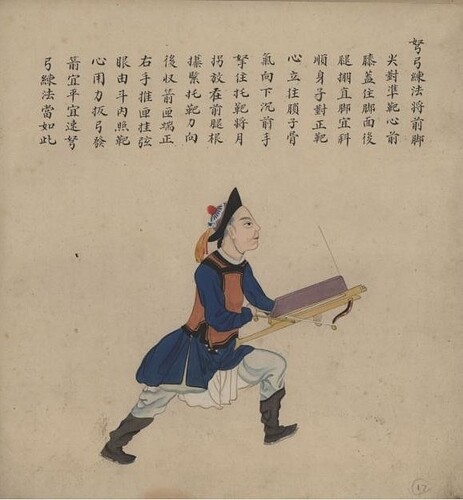 弩弓練法將前脚
尖對準靶心前
膝蓋住脚面後
腿掤直脚宜斜
順身子對正靶
心立住頦子骨
氣向下沉前手
拏住托靶將月
拐放在前腿根
攥緊托靶力向
後収箭匣端正
右手推匣挂弦
眼由斗内照靶
心用力扳弓發
箭宜平宜速弩
弓練法當如此